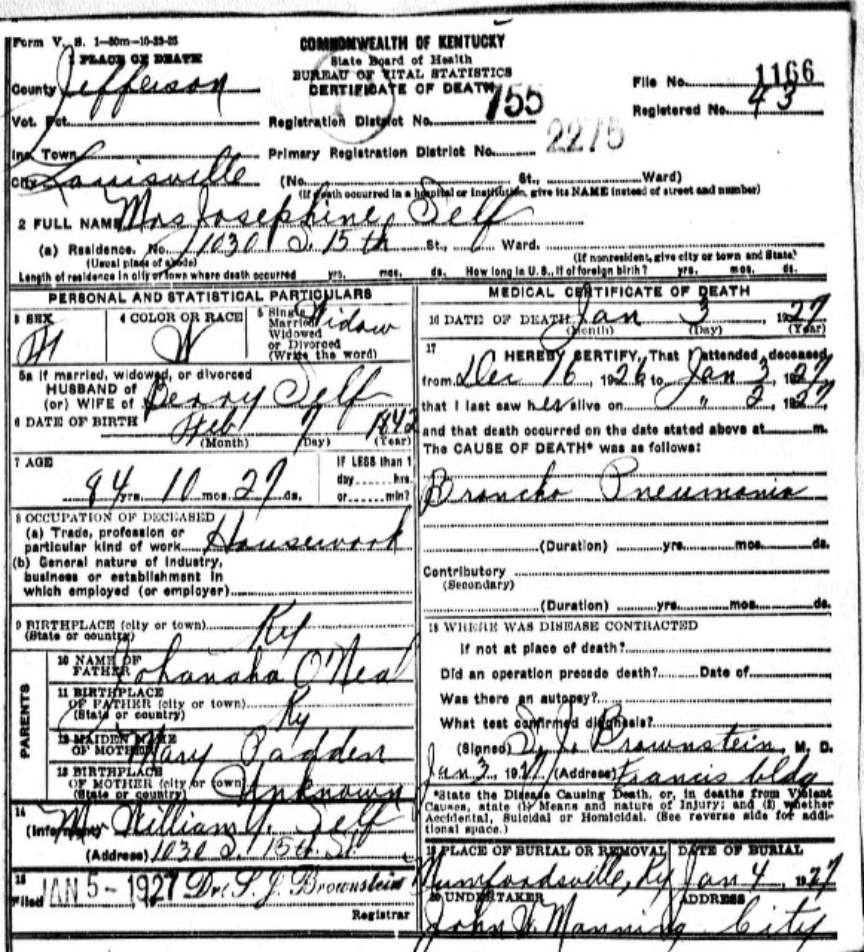 Form V. S. 1-50m-10-23-25
1 PLACE OF DEATH
County Jefferson
Vot. Pct.
Inc. Town
City Louisville
COMMONWEALTH OF KENTUCKY
State Board of Health
BUREAU OF VITAL STATISTICS
CERTIFICATE OF DEATH
Registration District No. 755
Primary Registration District No. 2275
File No. 1166
Registered No. 43
(No. St., Ward)
(If death occurred in a hospital or institution, give its NAME instead of street and number)
2 FULL NAME Mrs Josephine Self
(a) Residence. No. 1030 S. 15th St., Ward.
(Usual place of abode) (If nonresident, give city or town and State)
Length of residence in city or town where death occurred yrs. mos. ds. How long in U. S., if of foreign birth? yrs. mos. ds.
PERSONAL AND STATISTICAL PARTICULARS
3 SEX 4 COLOR OR RACE 5 Single Married Widowed or Divorced (Write the word)
W Widow
5a If married, widowed, or divorced
HUSBAND of
(or) WIFE of Berry Self
6 DATE OF BIRTH Feb 7 1842
(Month) (Day) (Year)
7 AGE IF LESS than 1
day hrs.
84 yrs. 10 mos. 27 ds. or min?
8 OCCUPATION OF DECEASED
(a) Trade, profession or
particular kind of work Housework
(b) General nature of industry,
business or establishment in
which employed (or employer)
9 BIRTHPLACE (city or town) Ky
(State or country)
PARENTS
10 NAME OF
FATHER O'Neal
11 BIRTHPLACE
OF FATHER (city or town) Ky
(State or country)
12 MAIDEN NAME
OF MOTHER Mary Padden
13 BIRTHPLACE
OF MOTHER (city or town) Unknown
(State or country)
14
(Informant) Mr William Self
(Address) 1030 S. 15th St.
15
Filed JAN 5 - 1927 Dr. S. J. Brownstein
Registrar
MEDICAL CERTIFICATE OF DEATH
16 DATE OF DEATH Jan 3, 1927
(Month) (Day) (Year)
17
I HEREBY CERTIFY, That I attended deceased
from Dec 16, 1926 to Jan 3, 1927
that I last saw her alive on " 2, 1927
and that death occurred on the date stated above at m.
The CAUSE OF DEATH* was as follows:
Broncho Pneumonia
(Duration) yrs. mos. ds.
Contributory
(Secondary)
(Duration) yrs. mos. ds.
18 WHERE WAS DISEASE CONTRACTED
If not at place of death?
Did an operation precede death? Date of
Was there an autopsy?
What test confirmed diagnosis?
(Signed) S. J. Brownstein, M. D.
Jan 3, 1927 (Address) Francis bldg
*State the Disease Causing Death, or, in deaths from Violent
Causes, state (1) Means and nature of Injury; and (2) whether
Accidental, Suicidal or Homicidal. (See reverse side for addi-
tional space.)
19 PLACE OF BURIAL OR REMOVAL DATE OF BURIAL
Munfordsville, Ky Jan 4, 1927
20 UNDERTAKER ADDRESS
John Manning City